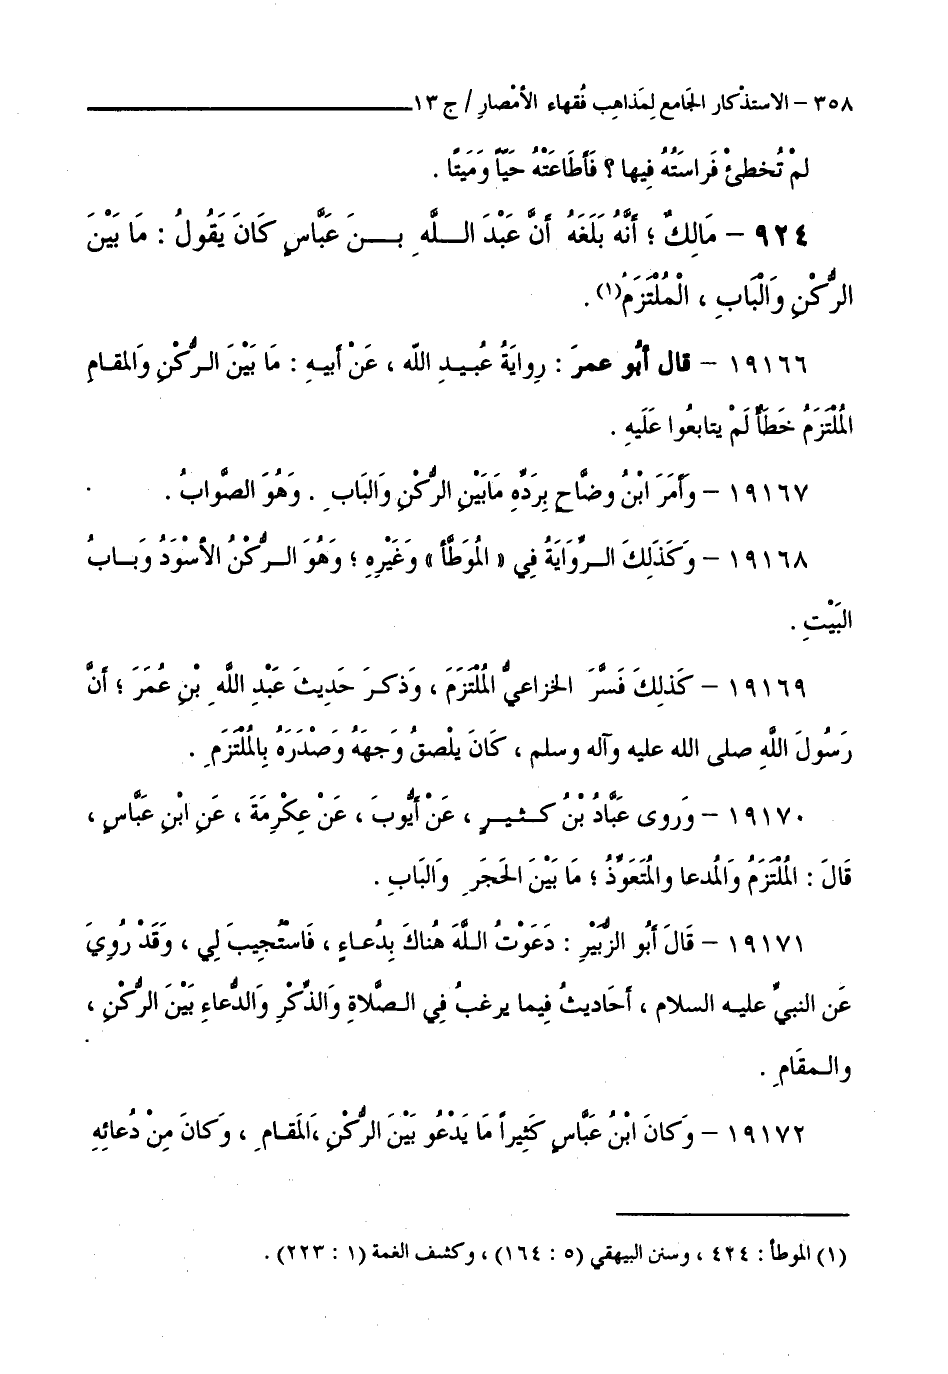 ٣٥٨ – الاستذْكار الجَامع لِمَذاهِب فُقهاء الأمْصارِ / ج ١٣
لمْ تُخطِئْ فَراسَتُهُ فِيها ؟ فَأَطَاعَتْهُ حَيّاً وَمَيتًا .
٩٢٤ – مَالِكٌ ؛ أَنَّهُ بَلَغَهُ أَنَّ عَبْدَ اللَّهِ بنَ عَبَّاسٍ كَانَ يَقُولُ : مَا بَيْنَ
الرُّكْنِ وَالْبَابِ ، الْمُلْتَزَمُ(١) .
١٩١٦٦ – قال أبُو عمرَ : رِوايَةُ عُبيدِ اللّه ، عَنْ أبيهِ : مَا بَيْنَ الرُّكْنِ وَالمقامِ
المُلْتَزَمُ خَطَأٌ لَمْ يتابعُوا عَلَيهِ .
١٩١٦٧ – وَأَمَرَ ابْنُ وضَّاحٍ بِرَدِّهِ مَابَيْنِ الرُّكْنِ وَالبَابِ . وَهُوَ الصَّوابُ .
١٩١٦٨ – وَكَذَلِكَ الرِّوَايَةُ فِي « المُوَطَّأ » وَغَيْرِهِ ؛ وَهُوَ الرُّكْنُ الأسْوَدُ وَبابُ
البَيْتِ .
١٩١٦٩ – كَذَلِكَ فَسَّرَ الخزاعيُّ المُلْتَزَمَ ، وَذكرَ حَدِيثَ عَبْدِ اللَّهِ بْنِ عُمَرَ ؛ أنَّ
رَسُولَ اللَّهِ صلى الله عليه وآله وسلم ، كَانَ يلْصقُ وَجهَهُ وَصْدرَهُ بِالمُلْتَزَمِ .
١٩١٧٠ – وَروى عَبَّادُ بْنُ كثيرٍ ، عَنْ أيُّوبَ ، عَنْ عِكْرِمَةَ ، عَنِ ابْنِ عَبَّاسٍ ،
قَالَ : المُلْتَزَمُ وَالمُدعا والمُتَعَوَّذُ ؛ مَا بَيْنَ الحَجَرِ وَالبَابِ .
١٩١٧١ – قَالَ أبُو الزُّبَيْرِ : دَعَوْتُ اللَّهَ هُناكَ بِدُعاءٍ ، فَاسْتُجيبَ لِي ، وَقَدْ رُوِيَ
عَنِ النبيِّ عليه السلام ، أحَاديثُ فيما يرغبُ فِي الصَّلاةِ وَالذِّكْرِ وَالدُّعاءِ بَيْنَ الرُّكْنِ ،
والمقَامِ .
١٩١٧٢ – وَكانَ ابْنُ عَبَّاسٍ كَثِيراً مَا يَدْعُو بَيْنَ الرُّكْنِ ،َالمَقامِ ، وَكانَ مِنْ دُعائِهِ
(١) الموطأ : ٤٢٤ ، وسنن البيهقي (٥ : ١٦٤) ، وكشف الغمة (١ : ٢٢٣) .